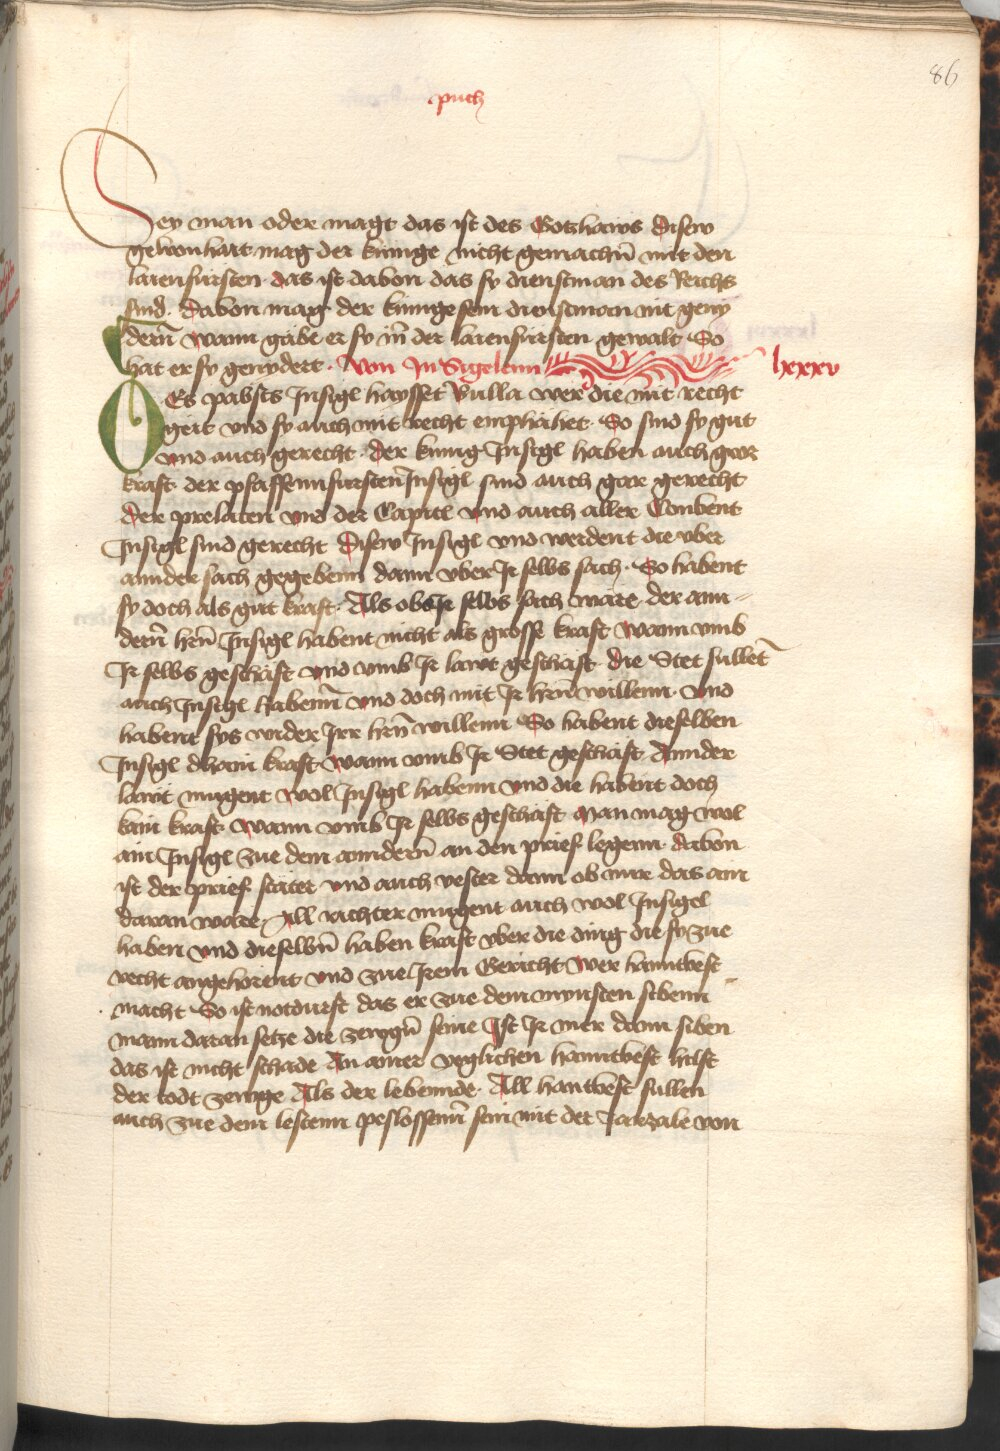 86
puch
Sey man oder magt das ist des Gotzhaws Disew
gewonhait mag der künige nicht gemachn̄ mit den
laienfürsten das ist dabon das sy dienstman des Reichs
sind. Dabon mag der künige sein dienstman nit geny
dern̄ wann gäbe er sy in̄ der laienfürsten gewalt So
hat er sy genydert. Von InSigelenn lxxxv
Des pabsts Insigl haysset Bulla wer die mit recht
geit vnd sy auch mit recht emphahet. So sind sy gut
vnd auch gerecht. der kunig Insigl haben auch gros
kraft. der pfaffennfürsten̄ Insigl sind auch gar gerecht
der prelaten vnd der Capitl vnd auch aller Conbent
Insigl sind gerecht Disew Insigl vnd werdent die vber
annder sach gegebenn dann vber Ir selbs sach. So habent
sy doch als gut kraft. Als ob sIr selbs sach wäre. der ann=
dern̄ hrn̄ Insigl habent nicht als grosse kraft wann vmb
Ir selbs geschäft vnd vmb Ir lawt geschäft. die Stet sullet̄
auch Insigl habenn̄ vnd doch mit Ir hrn̄ willenn. vnd
habent sys wider Irr hrn̄ willenn So habent dieselben
Insigl dhain kraft wann vmb Ir Stet geschäft. Annder
lawt mugent wol Insigl habenn vnd die habent doch
kain kraft. wann vmb Ir selbs geschäft Man mag wol
ain Insigl zue dem anndern̄ an den prief legenn. dabon
ist der prief stäter vnd auch vester dann ob nur das ain
daran wäre. All richter mugent auch wol Insigel
haben vnd dieselbn̄ haben kraft vber die ding die sy zue
recht angehörent vnd zue Irem Gericht Wer hanntvest
macht So ist notdurft das er zue dem mynsten sibenn
mann daran setze die zewgn̄ seine Ist Ir mer dann siben
das ist nicht schade An ainer yeglichen hanntvest hilft
der todt zewge Als der lebennde. All hantvest sullen
auch zue dem lestenn peslossenn̄ sein mit der Jarzale von